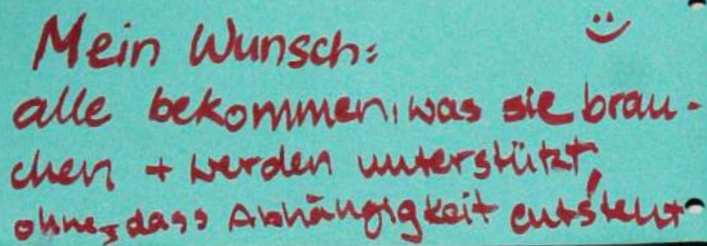 Mein Wunsch:
alle bekommen, was sie brau-
chen + werden unterstützt,
ohne, dass Abhängigkeit entsteht